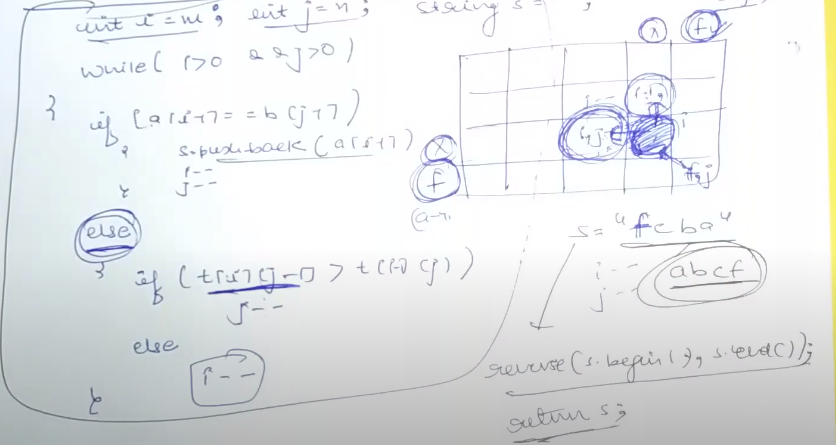 int i=m; int j=n;
string s = ;
while( i>0 && j>0)
{
if (a[i-1] == b[j-1])
{
s.push_back(a[i-1])
i--
j--
}
else
{
if (t[i][j-1] > t[i-1][j])
j--
else
i--
}
x f
x
f
i,j
s= "fcba"
i--
j--
abcf
reverse(s.begin(), s.end());
return s;